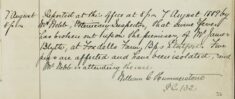 7 August Reported at the office at 8 p.m. 7 August 1889 by
8 p.m. Mr Webb, Veterinary Inspector, that Swine Fever
has broken out upon the premises of Mr James
Blyth, at Foxdells Farm, Bps Stortford. Two
pigs are affected and have been isolated, and
Mr Webb is attending the case.
William C Hummerstone
P.C. 132.